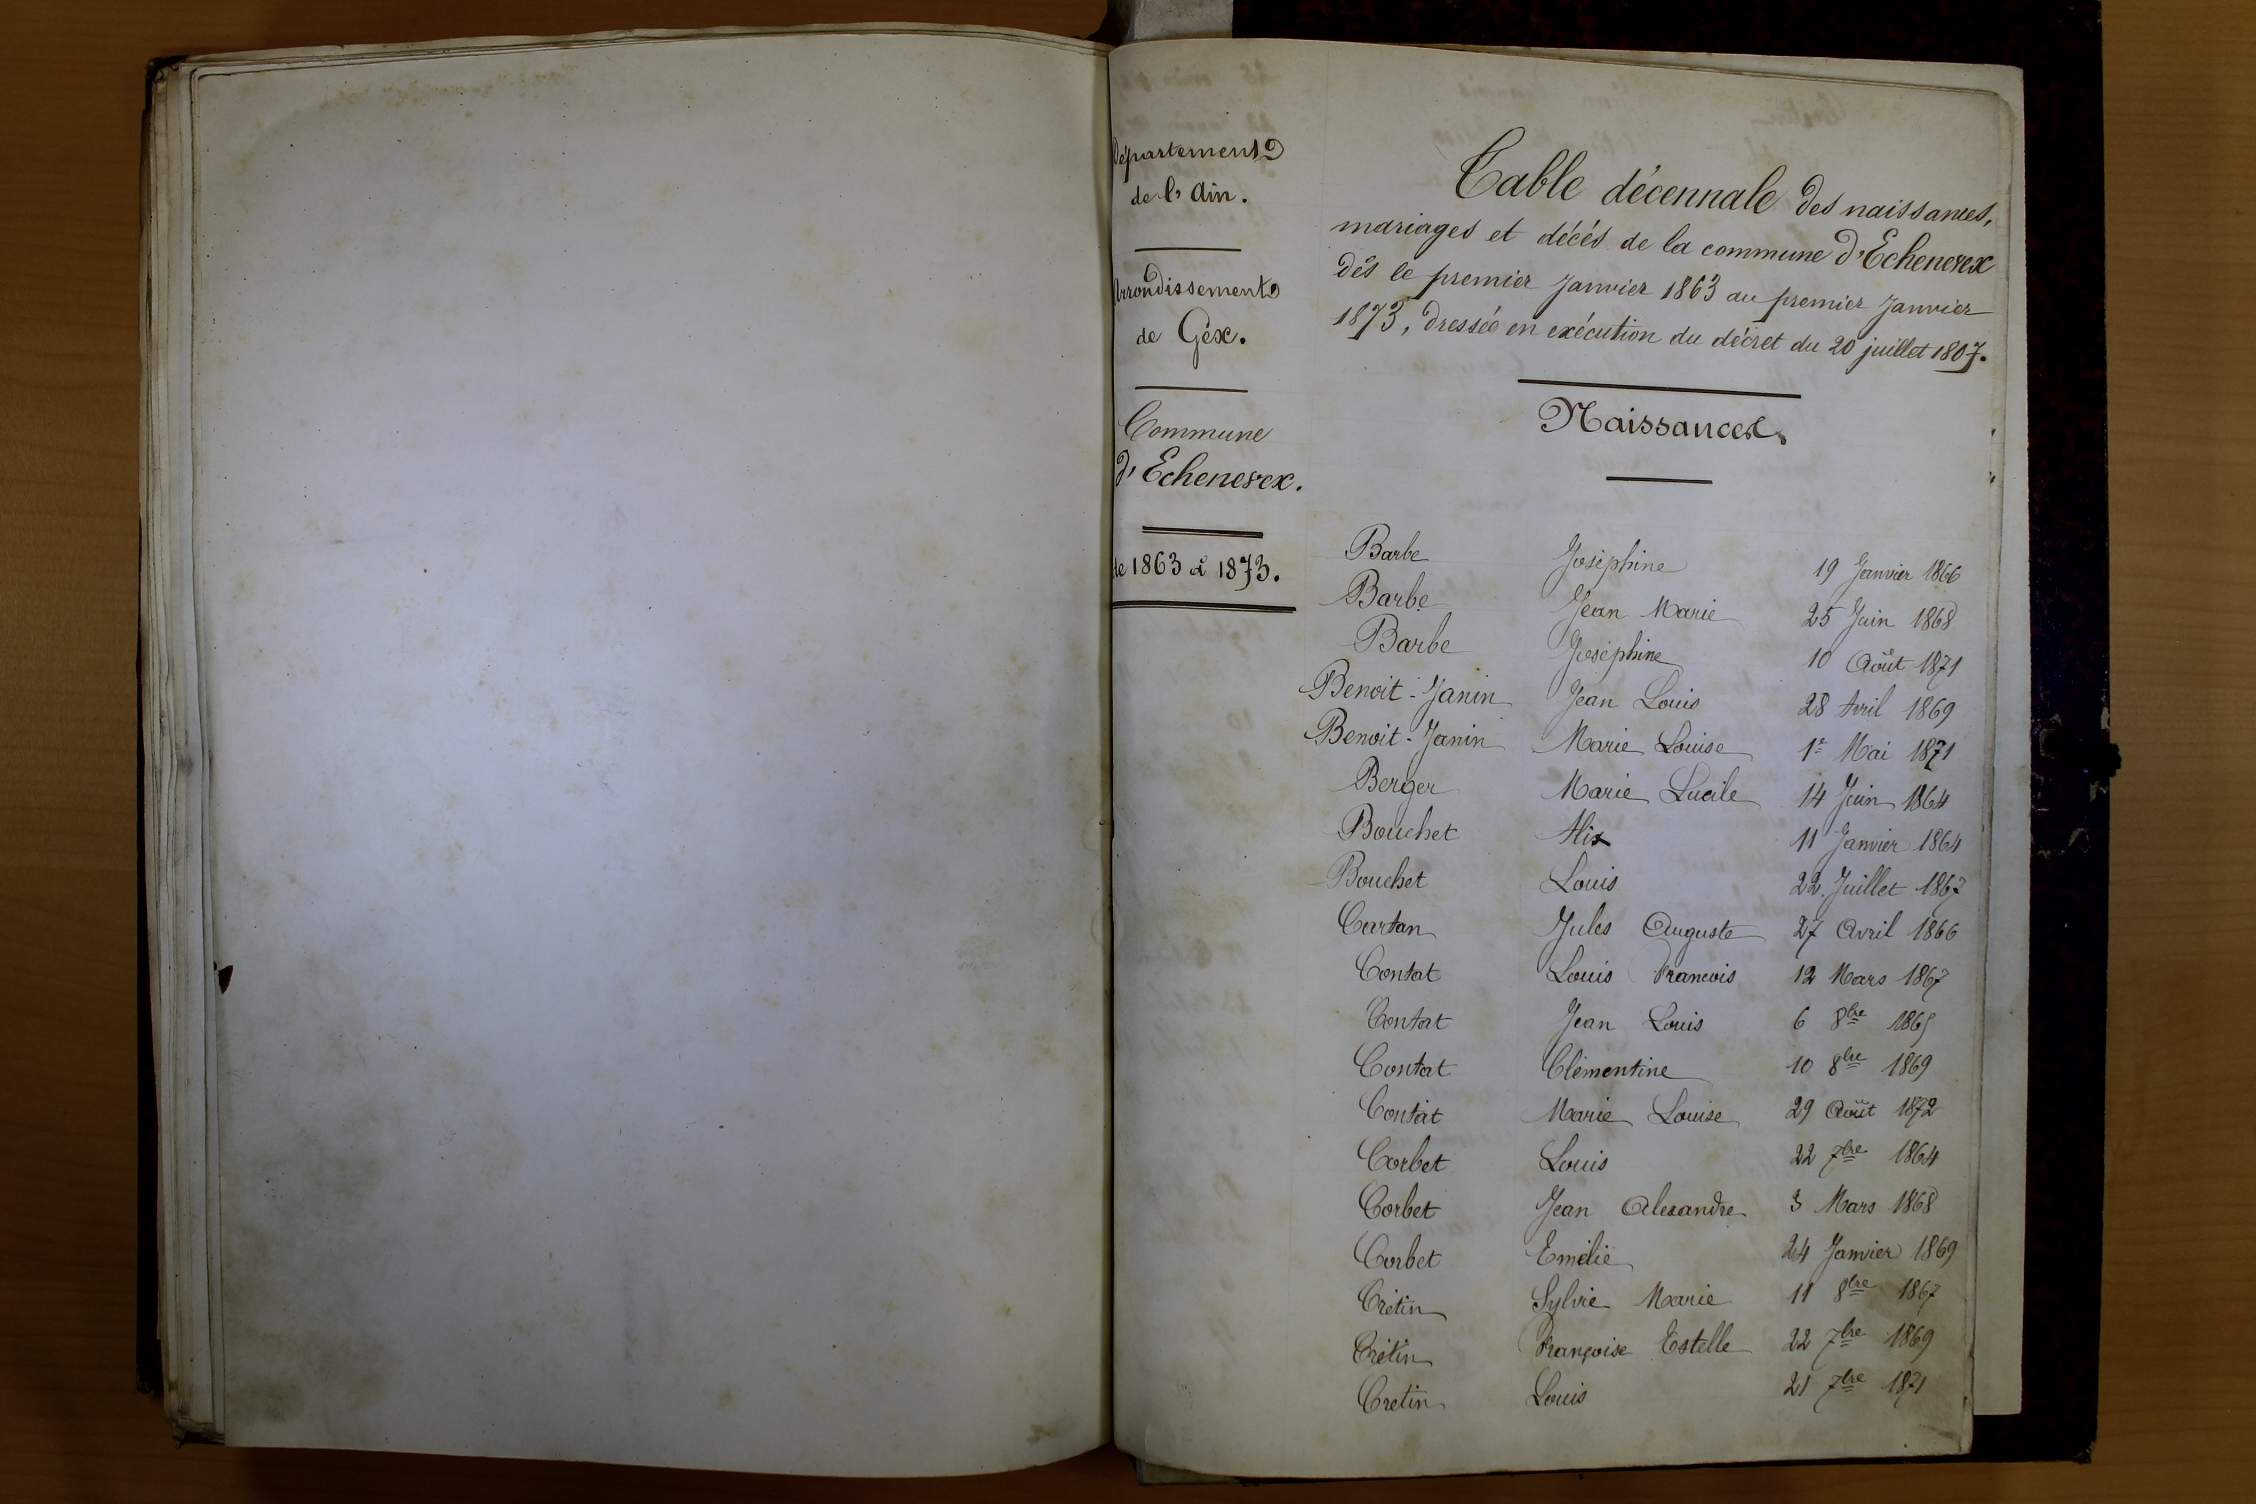 Département
de l'Ain.
Arrondissement
de Géx.
Commune
d'Echenevex.
de 1863 à 1873.
Table décennale des naissances,
mariages et décés de la commune d'Echenevex
dès le premier Janvier 1863 au premier Janvier
1873, dressée en exécution du décret du 20 juillet 1807.
Naissances.
Barbe Joséphine 19 Janvier 1866
Barbe Jean Marie 25 Juin 1868
Barbe Joséphine 10 Août 1871
Benoit-Janin Jean Louis 28 Avril 1869
Benoit-Janin Marie Louise 1er Mai 1871
Berger Marie Lucile 14 Juin 1864
Bouchet Alix 11 Janvier 1864
Bouchet Louis 22 Juillet 1867
Cartan Jules Auguste 27 Avril 1866
Contat Louis Francois 12 Mars 1867
Contat Jean Louis 6 8bre 1865
Contat Clémentine 10 8bre 1869
Contat Marie Louise 29 Août 1872
Corbet Louis 22 7bre 1864
Corbet Jean Alexandre 3 Mars 1868
Corbet Emélie 24 Janvier 1869
Crétin Sylvie Marie 11 8bre 1867
Crétin Françoise Estelle 22 7bre 1869
Cretin Louis 21 7bre 1871